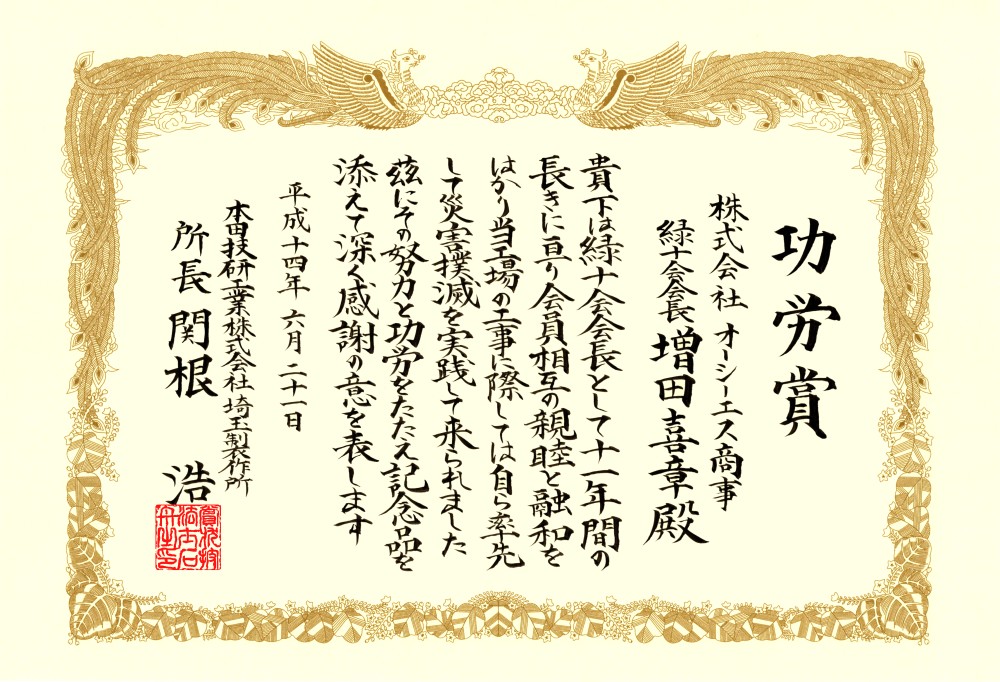 功労賞
株式会社 オーシーエス商事
緑十会会長 増田喜章殿
貴下は緑十会会長として十一年間の
長きに亘り会員相互の親睦と融和を
はかり当工場の工事に際しては自ら率先
して災害撲滅を実践して来られました
茲にその努力と功労をたたえ記念品を
添えて深く感謝の意を表します
平成十四年 六月 二十一日
本田技研工業株式会社 埼玉製作所
所長 関根 浩